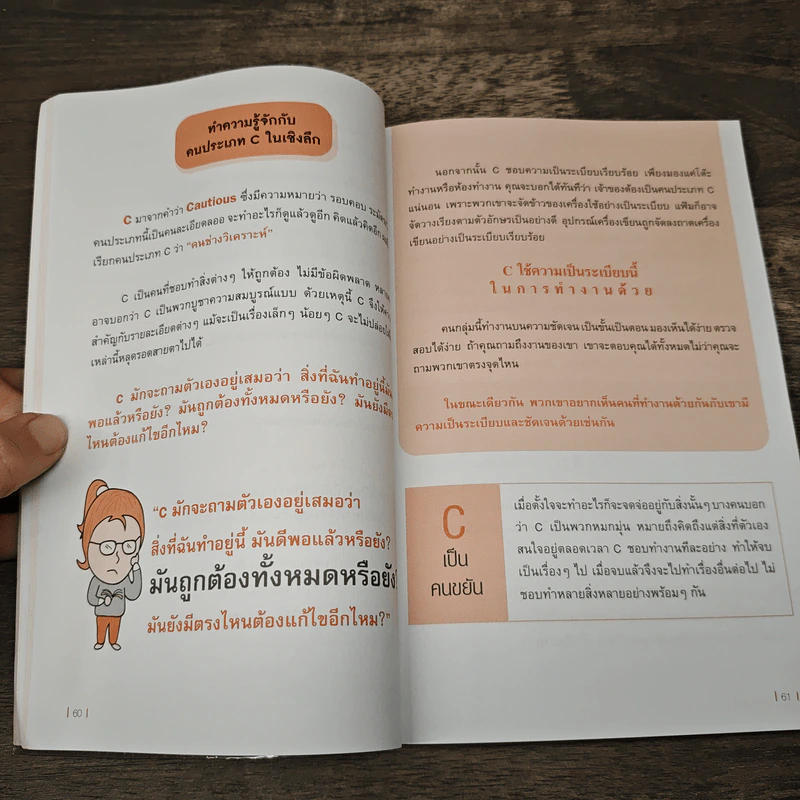 ทำความรู้จักกับ
คนประเภท C ในเชิงลึก
C มาจากคำว่า Cautious ซึ่งมีความหมายว่า รอบคอบ
คนประเภทนี้เป็นคนละเอียดลออ จะทำอะไรก็ดูแล้วดูอีก คิดแล้วคิดอีก
เรียกคนประเภท C ว่า “คนช่างวิเคราะห์”
C เป็นคนที่ชอบทำสิ่งต่างๆ ให้ถูกต้อง ไม่มีข้อผิดพลาด
อาจบอกว่า C เป็นพวกบูชาความสมบูรณ์แบบ ด้วยเหตุนี้ C จึงให้
สำคัญกับรายละเอียดต่างๆ แม้จะเป็นเรื่องเล็กๆ น้อยๆ C จะไม่ปล่อย
เหล่านี้หลุดรอดสายตาไปได้
C มักจะถามตัวเองอยู่เสมอว่า สิ่งที่ฉันทำอยู่นี้
พอแล้วหรือยัง? มันถูกต้องทั้งหมดหรือยัง? มันยังมี
ไหนต้องแก้ไขอีกไหม?
“C มักจะถามตัวเองอยู่เสมอว่า
สิ่งที่ฉันทำอยู่นี้ มันดีพอแล้วหรือยัง?
มันถูกต้องทั้งหมดหรือยัง?
มันยังมีตรงไหนต้องแก้ไขอีกไหม?”
| 60 |
นอกจากนั้น C ชอบความเป็นระเบียบเรียบร้อย เพียงมองแค่โต๊ะ
ทำงานหรือห้องทำงาน คุณจะบอกได้ทันทีว่า เจ้าของต้องเป็นคนประเภท C
แน่นอน เพราะพวกเขาจะจัดข้าวของเครื่องใช้อย่างเป็นระเบียบ แฟ้มก็อาจ
จัดวางเรียงตามตัวอักษรเป็นอย่างดี อุปกรณ์เครื่องเขียนถูกจัดลงถาดเครื่อง
เขียนอย่างเป็นระเบียบเรียบร้อย
C ใช้ความเป็นระเบียบนี้
ในการทำงานด้วย
คนกลุ่มนี้ทำงานบนความชัดเจน เป็นขั้นเป็นตอน มองเห็นได้ง่าย ตรวจ
สอบได้ง่าย ถ้าคุณถามถึงงานของเขา เขาจะตอบคุณได้ทั้งหมดไม่ว่าคุณจะ
ถามพวกเขาตรงจุดไหน
ในขณะเดียวกัน พวกเขาอยากเห็นคนที่ทำงานด้วยกันกับเขามี
ความเป็นระเบียบและชัดเจนด้วยเช่นกัน
C
เป็น
คนขยัน
เมื่อตั้งใจจะทำอะไรก็จะจดจ่ออยู่กับสิ่งนั้นๆ บางคนบอก
ว่า C เป็นพวกหมกมุ่น หมายถึงคิดถึงแต่สิ่งที่ตัวเอง
สนใจอยู่ตลอดเวลา C ชอบทำงานทีละอย่าง ทำให้จบ
เป็นเรื่องๆ ไป เมื่อจบแล้วจึงจะไปทำเรื่องอื่นต่อไป ไม่
ชอบทำหลายสิ่งหลายอย่างพร้อมๆ กัน
| 61 |